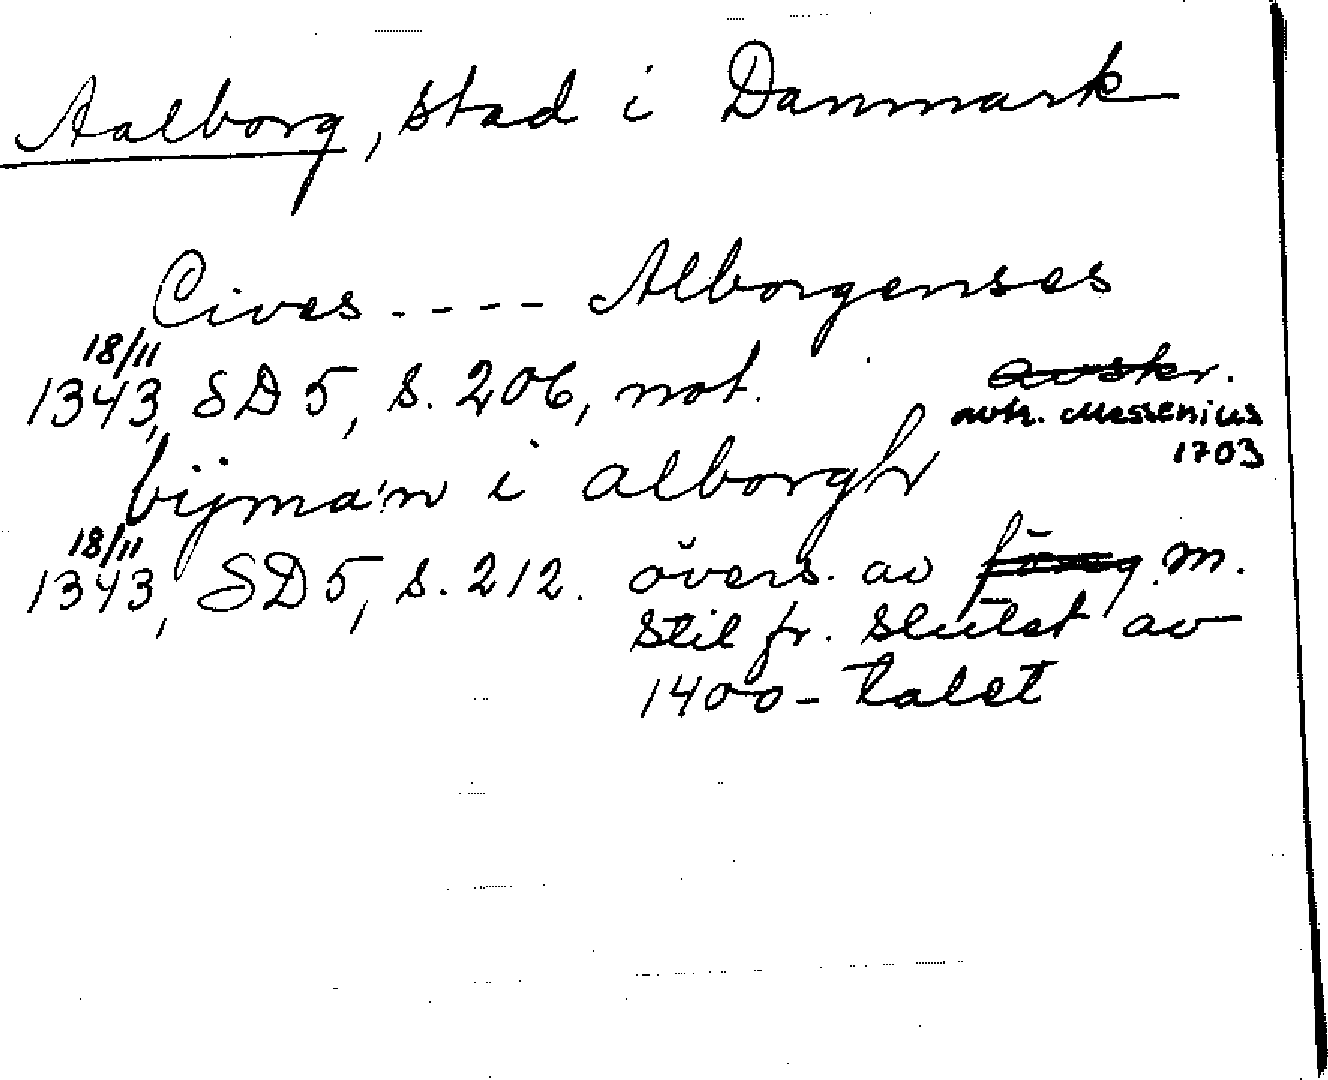 Aalborg, stad i Danmark
Cives ---- Alborgenses
18/11
1343, SD 5, s. 206, not. avskr.
avtr. Messenius
1703
bijmän i alborgh
18/11
1343, SD 5, s. 212. övers. av föreg. m.
stil fr. slutet av
1400-talet